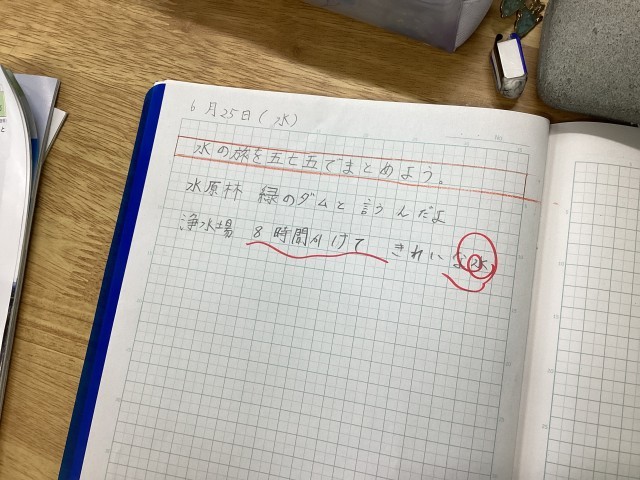 6月25日(水)
水の旅を五七五でまとめよう。
水原林 緑のダムと言うんだよ
浄水場 8時間かけて きれいな水